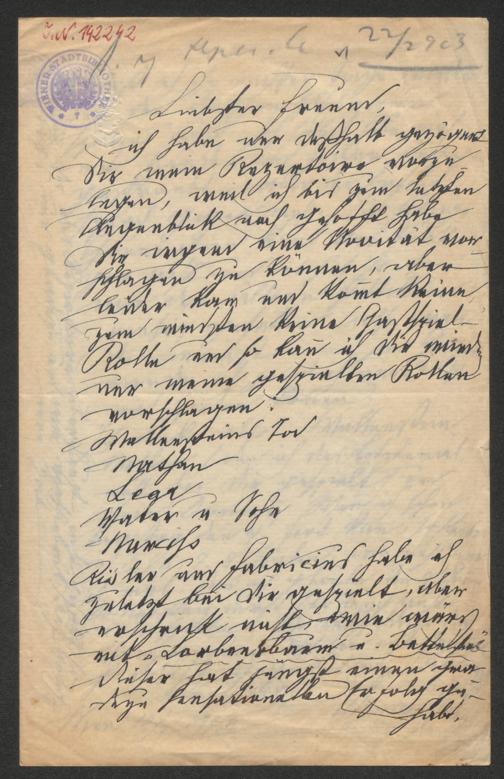 J.N. 142242
WIENER STADTBIBLIOTHEK
22/2 903
Liebster Freund,
ich habe nur deßhalb gezögert
Dir mein Repertoire vorzu-
legen, weil ich bis zum letzten
Augenblick noch gehofft habe
Dir irgend eine Novität vor-
schlagen zu können, aber
leider kam und kom̄t keine
zum mindsten keine Gastspiel-
Rolle und so kan̄ ich Dir wieder
nur meine gespielten Rollen
vorschlagen:
Wallensteins Tod
Nathan
Lear
Vater u Sohn
Narciß
Risler und Fabricius habe ich
zuletzt bei Dir gespielt, aber
erschrick nicht wie wärs
mit „Lorbeerbaum u. Bettelstab
dieser hat jüngst einen gra-
dezu sensationellen Erfolg ge-
habt.